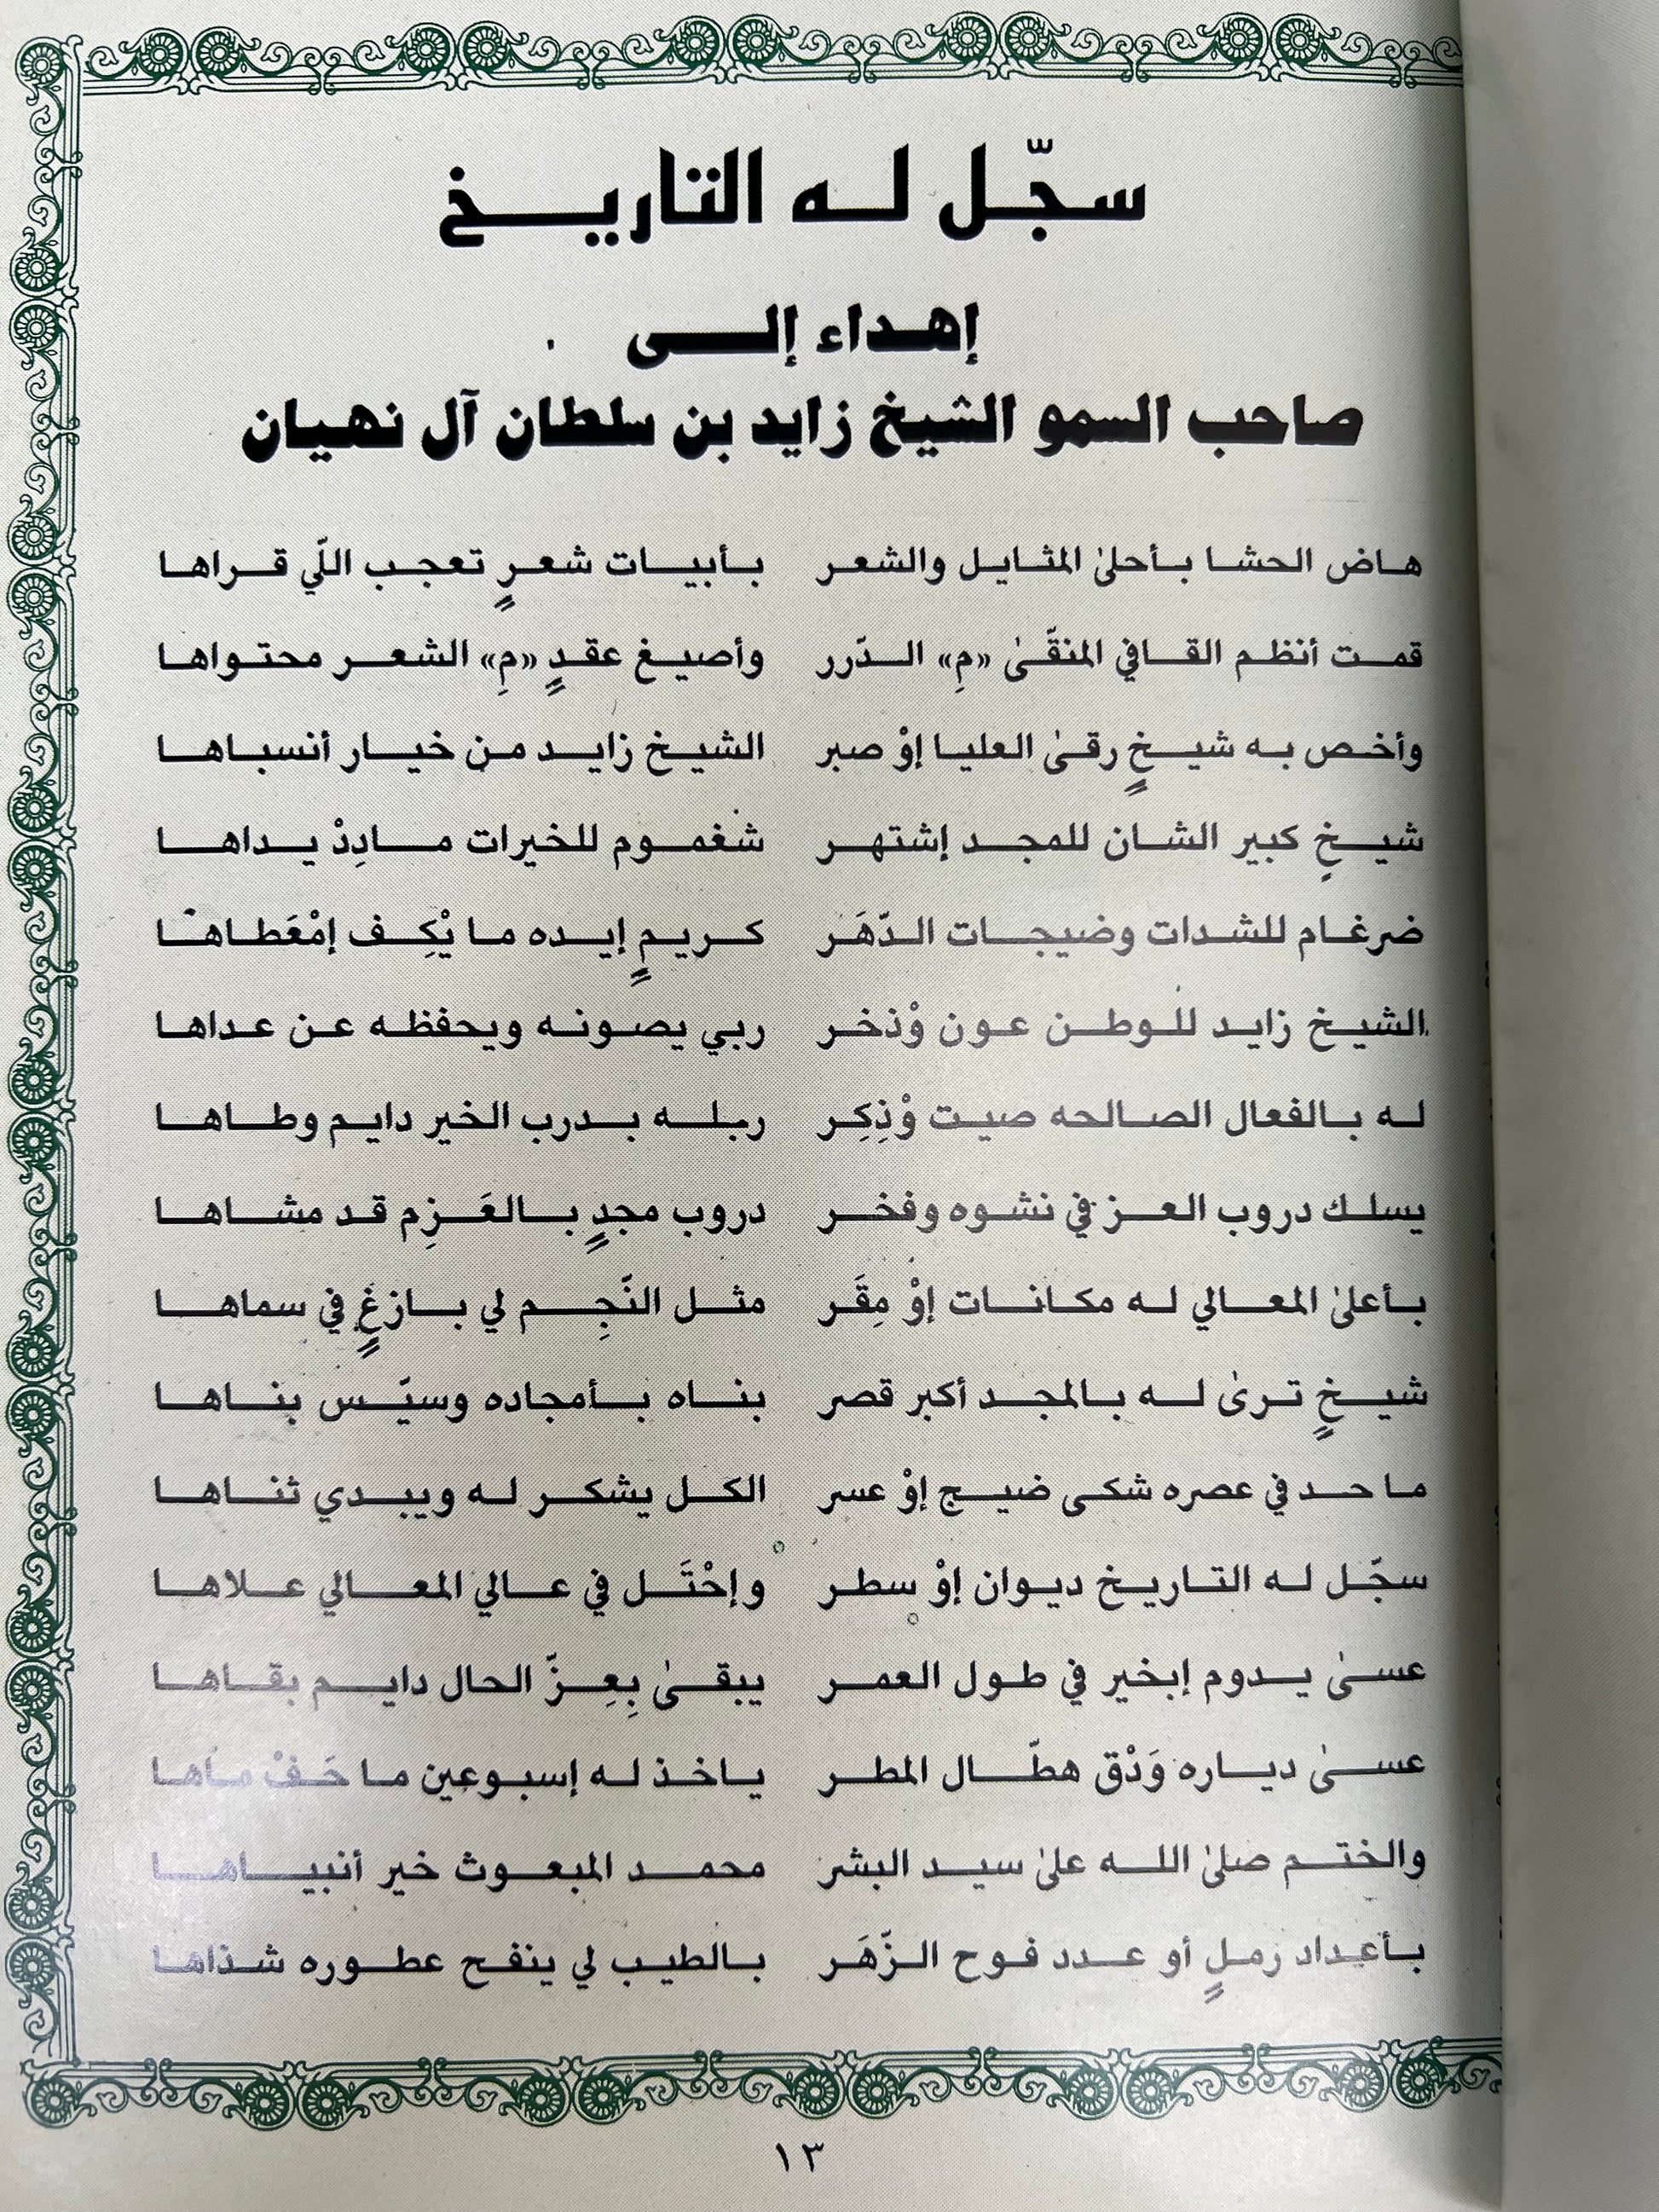 سجّل له التاريخ
إهداء إلى
صاحب السمو الشيخ زايد بن سلطان آل نهيان
هاض الحشا بأحلىٰ المثايل والشعر بأبيات شعرٍ تعجب اللّي قراها
قمت أنظم القافي المنقّىٰ «مِ» الدّرر وأصيغ عقدٍ «مِ» الشعر محتواها
وأخص به شيخٍ رقىٰ العليا إوْ صبر الشيخ زايد من خيار أنسباها
شيخٍ كبير الشان للمجد إشتهر شغموم للخيرات مادِدْ يداها
ضرغام للشدات وضيجات الدّهَر كريمٍ إيده ما يْكِف إمْعَطاها
الشيخ زايد للوطن عون وْذخر ربي يصونه ويحفظه عن عداها
له بالفعال الصالحه صيت وْذِكِر ربله بدرب الخير دايم وطاها
يسلك دروب العز في نشوه وفخر دروب مجدٍ بالعَزِم قد مشاها
بأعلىٰ المعالي له مكانات إوْ مِقَر مثل النّجِم لي بازغٍ في سماها
شيخٍ ترىٰ له بالمجد أكبر قصر بناه بأمجاده وسيّس بناها
ما حد في عصره شكى ضيج إوْ عسر الكل يشكر له ويبدي ثناها
سجّل له التاريخ ديوان إوْ سطر وإحْتَل في عالي المعالي علاها
عسىٰ يدوم إبخير في طول العمر يبقىٰ بِعِزّ الحال دايم بقاها
عسىٰ دياره وَدْق هطّال المطر ياخذ له إسبوعين ما خَفْ ماها
والختم صلىٰ الله علىٰ سيد البشر محمد المبعوث خير أنبياها
بأعداد رملٍ أو عدد فوح الزّهَر بالطيب لي ينفح عطوره شذاها
١٣